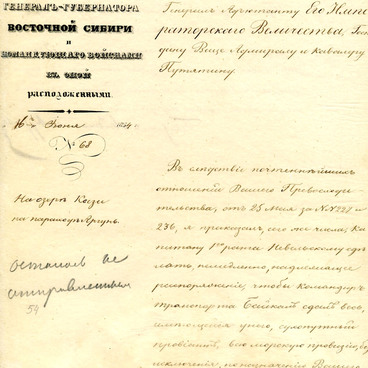 ГЕНЕРАЛЪ-ГУБЕРНАТОРА
ВОСТОЧНОЙ СИБИРИ
и
КОМАНДУЮЩАГО ВОЙСКАМИ
ВЪ ОНОЙ
РАСПОЛОЖЕННЫМИ.
16 Іюня
№ 68
На озерѣ Кизи
на пароходѣ Аргунь.
осталось не
отправленным
54
Генералъ Адъютанту Его Импе
раторскаго Величества, Гос
дину Вице Адмиралу и Кавалеру
Путятину.
Въ слѣдствіе почтеннѣйшихъ
отношеній Вашего Превосходи
тельства, отъ 25 Мая за №№ 227 и
236, я приказалъ, сего же числа, Ка
питану 1го ранга Невельскому сдѣ
лать, немедленно, надлежащее
распоряженіе, чтобы Командиръ
транспорта Байкалъ сдалъ весь,
имѣющійся у него, сухопутный
провіантъ, всю морскую провизію, без
исключенія, по назначенію Вашего